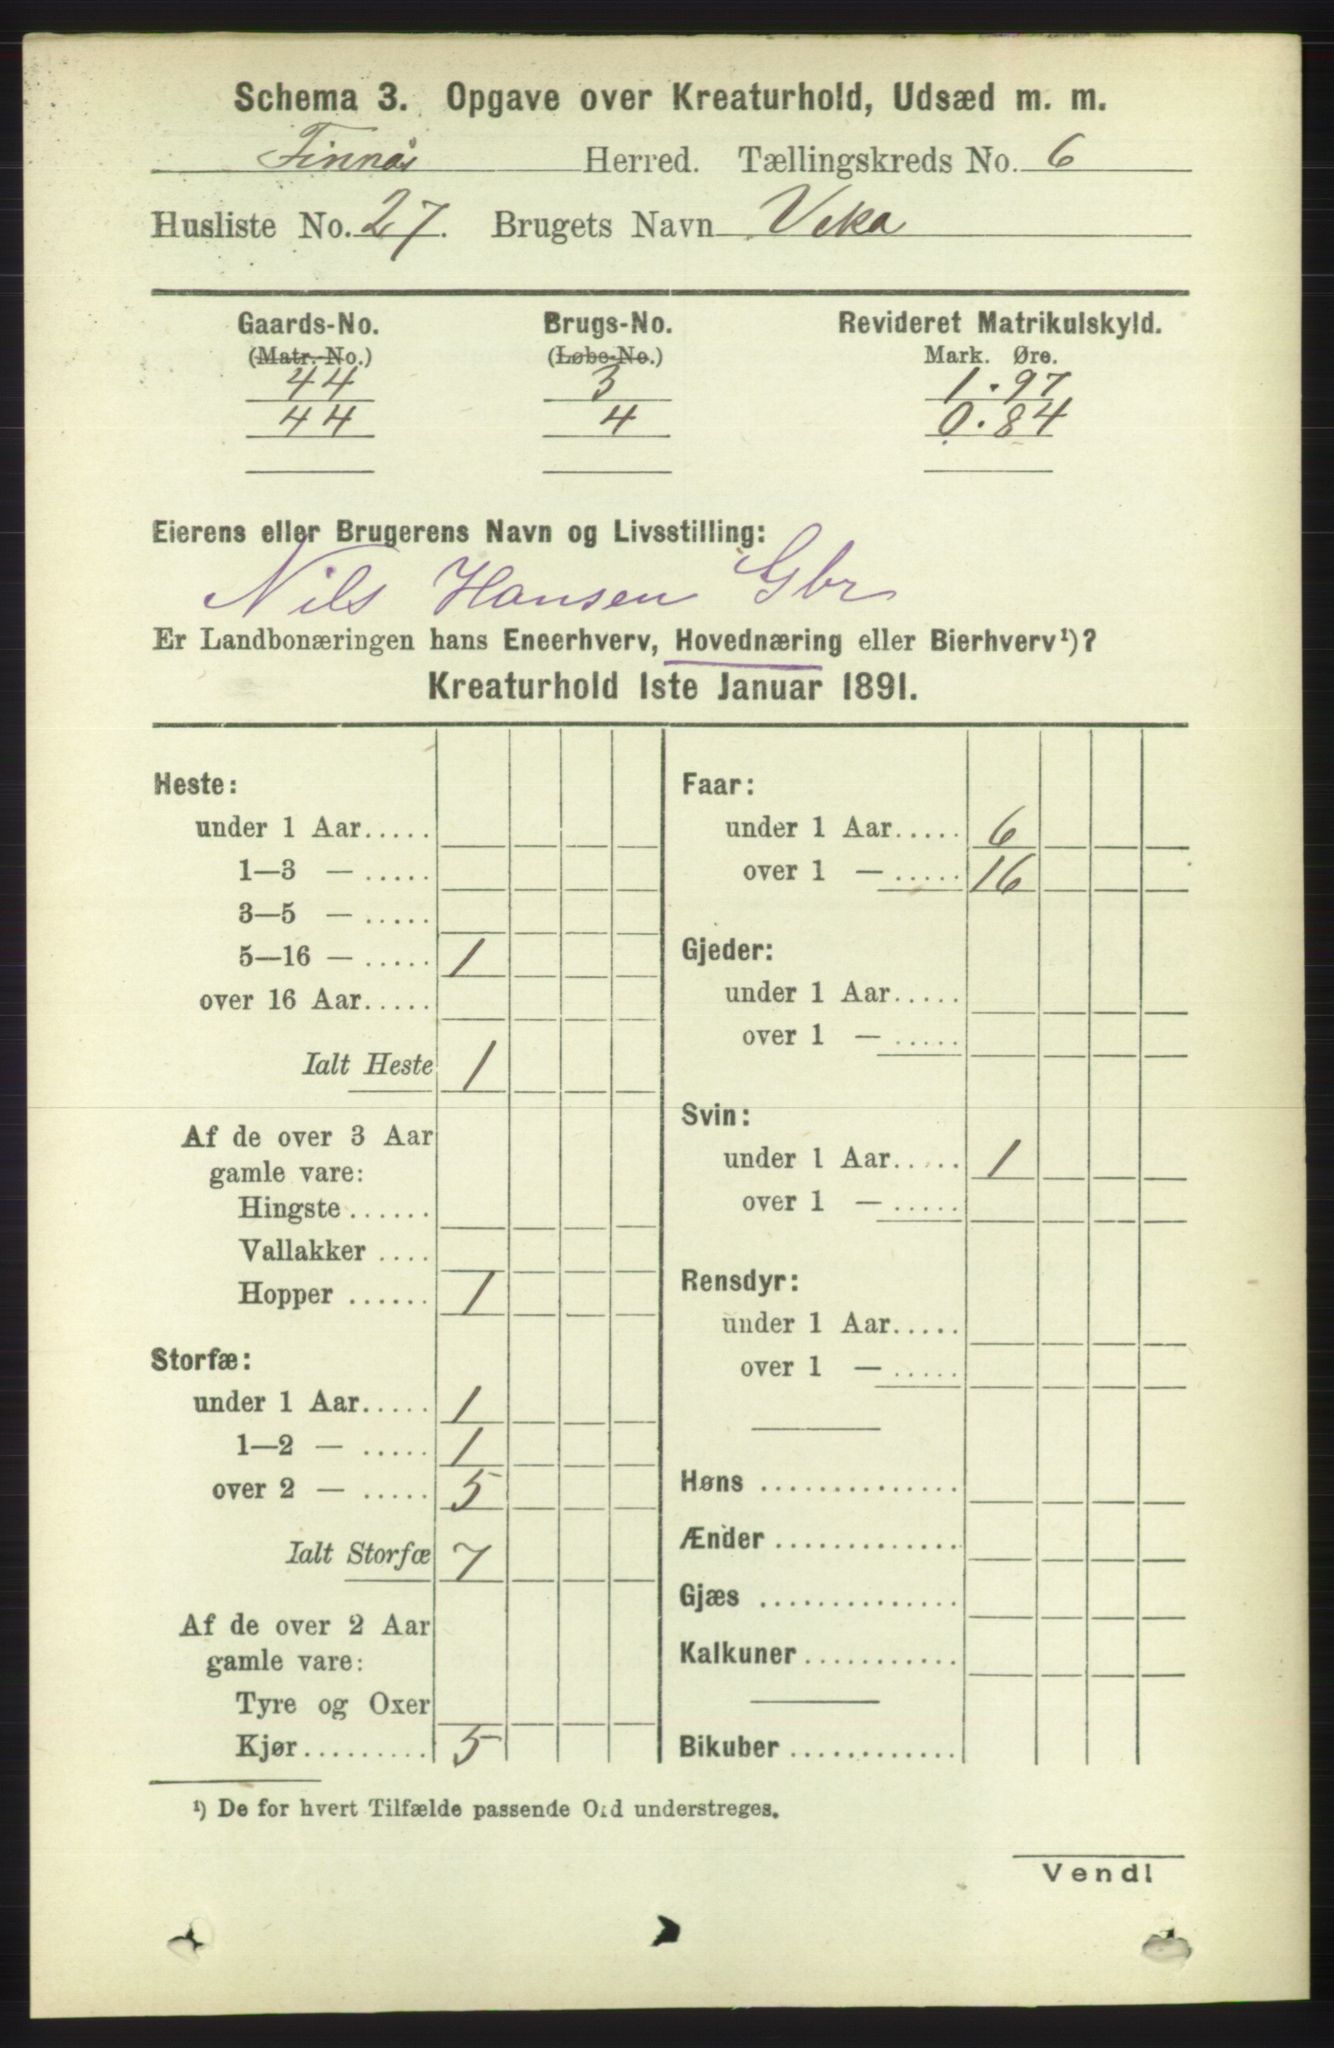 Schema 3. Opgave over Kreaturhold, Udsæd m. m.
Finnås Herred. Tællingskreds No. 6
Husliste No. 27. Brugets Navn Vika
Gaards-No. Brugs-No. Revideret Matrikulskyld.
(Matr.-No.) (Løbe-No.) Mark. Øre.
44 3 1.97
44 4 0.84
Eierens eller Brugerens Navn og Livsstilling:
Nils Hansen Gbr
Er Landbonæringen hans Eneerhverv, Hovednæring eller Bierhverv¹)?
Kreaturhold 1ste Januar 1891.
Heste:
under 1 Aar.....
1—3 — .....
3—5 — .....
5—16 — ..... 1
over 16 Aar.....
Ialt Heste 1
Af de over 3 Aar
gamle vare:
Hingste ......
Vallakker ....
Hopper ...... 1
Storfæ:
under 1 Aar..... 1
1—2 — ..... 1
over 2 — ..... 5
Ialt Storfæ 7
Af de over 2 Aar
gamle vare:
Tyre og Oxer
Kjør......... 5
Faar:
under 1 Aar..... 6
over 1 — ..... 16
Gjeder:
under 1 Aar.....
over 1 — .....
Svin:
under 1 Aar..... 1
over 1 — .....
Rensdyr:
under 1 Aar.....
over 1 — .....
Høns ..............
Ænder .............
Gjæs ..............
Kalkuner ...........
Bikuber ............
¹) De for hvert Tilfælde passende Ord understreges.
Vend!